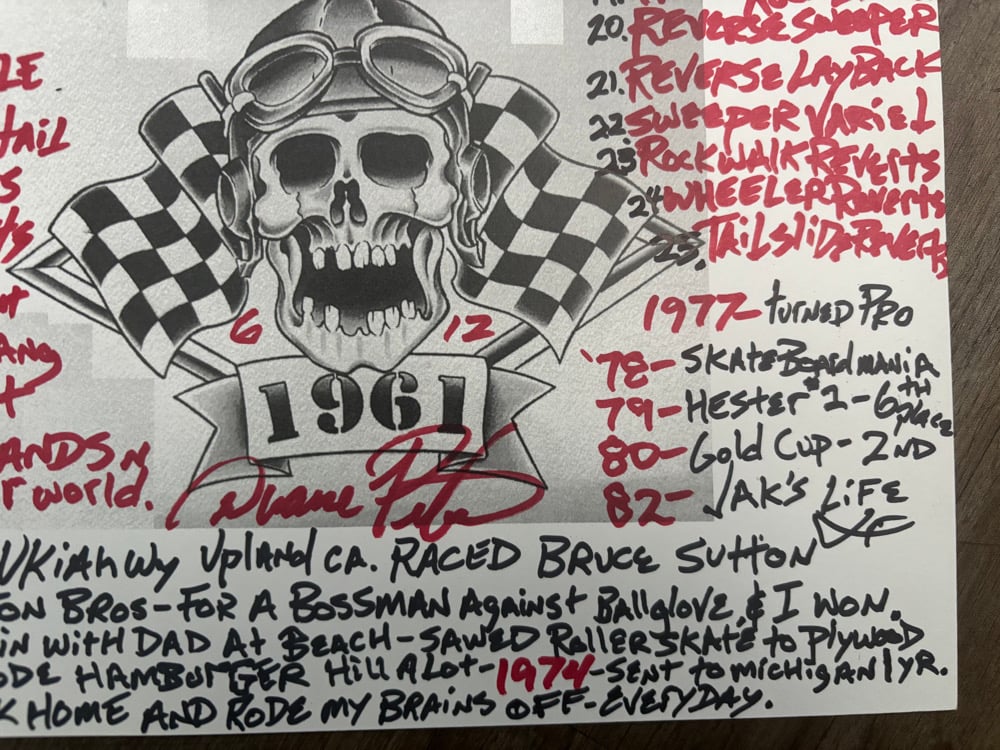 20. REVERSE SWEEPER
21. REVERSE LAYBACK
22. SWEEPER VARIEL
23. ROCKWALK REVERTS
24 WHEELER REVERTS
25. TAILSLIDE REVERTS
TAIL
ANDS N
r world.
6 12
1961
Duane Peters
1977- TURNED PRO
'78- SKATEBOARDMANIA
79- HESTER #1 - 6TH place
80- Gold Cup - 2ND
82- JAK'S LIFE
UKiAH Wy Upland CA. RACED BRUCE SUTTON
ON BROS - FOR A BOSSMAN Against Ballglove & I WON.
IN WITH DAD At BEACH - SAWED Roller SKATE to Plywood
ODE HAMBURGER Hill A Lot - 1974 - SENT to michigan 1 yR.
K HOME AND RODE MY BRAINS OFF - EVERYDAY.